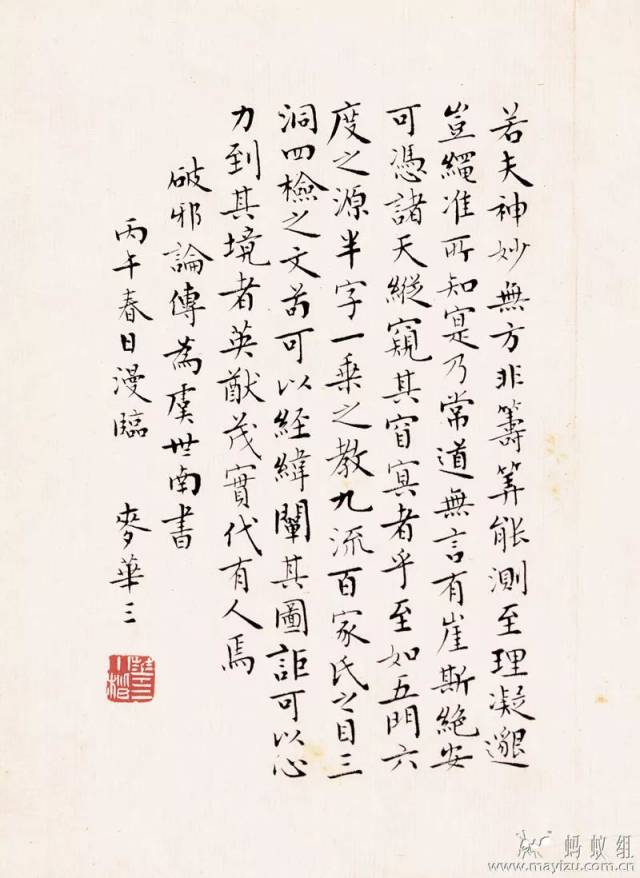 若夫神妙無方非籌筭能測至理凝邈
豈繩准所知寔乃常道無言有崖斯絕安
可憑諸天縱窺其窅冥者乎至如五門六
度之源半字一乘之教九流百家氏之目三
洞四檢之文苟可以經緯闡其圖詎可以心
力到其境者英猷茂實代有人焉
破邪論傳為虞世南書
丙午春日漫臨 麥華三
蚂蚁组
www.mayizu.com.cn